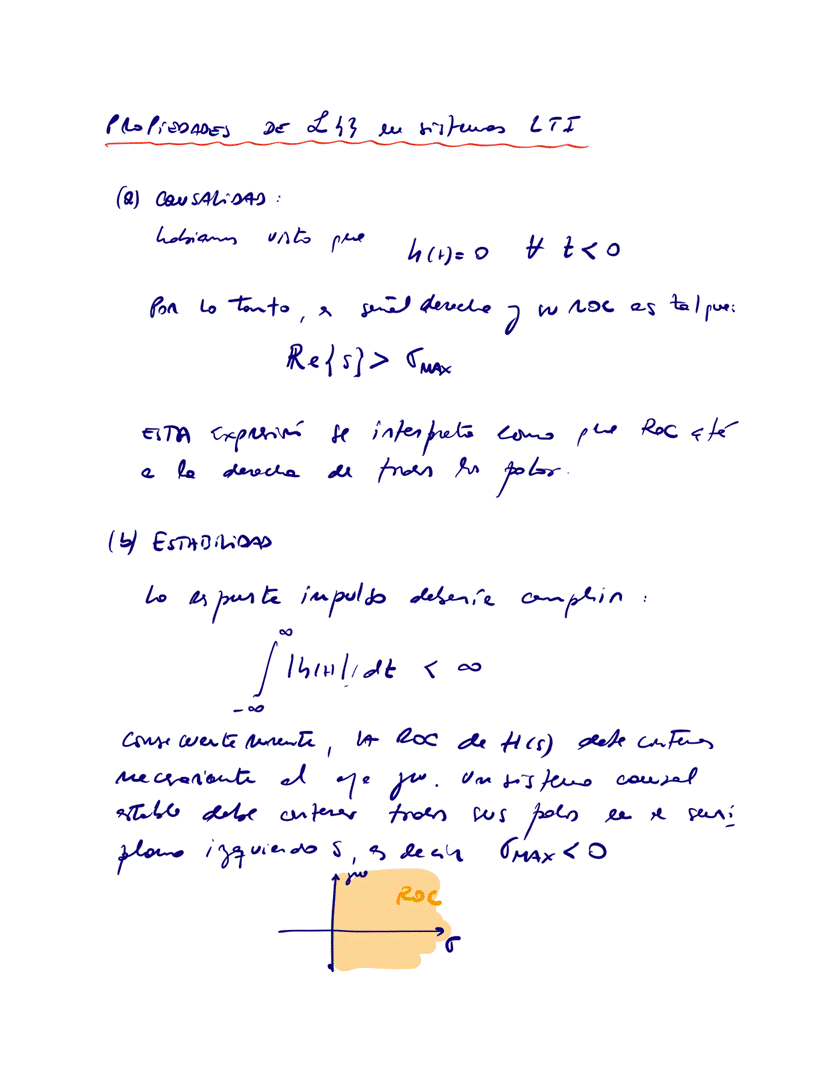 PROPIEDADES DE L{} en sistemas LTI
(a) CAUSALIDAD:
habíamos visto que h(t)=0 ∀ t<0
Por lo tanto, es señal derecha y su ROC es tal que:
Re{s}> σMAX
ESTA expresión se interpreta como que ROC está
a la derecha de todos los polos.
(b) ESTABILIDAD
La respuesta impulso debería cumplir:
∫_{-∞}^{∞} |h(t)| dt < ∞
Consecuentemente, LA ROC de H(s) debe contener
necesariamente el eje jω. Un sistema causal
estable debe contener todos sus polos en el semi
plano izquierdo s, es decir σMAX<0
jω
ROC
σ